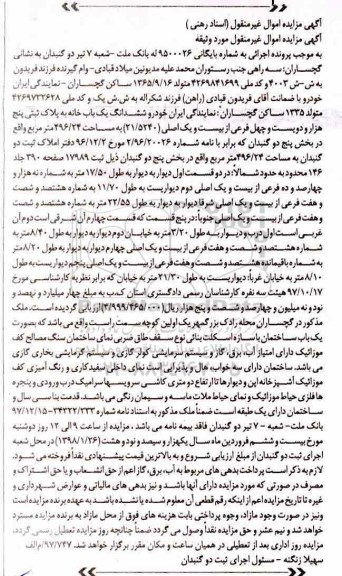 آگهی مزایده اموال غیرمنقول (اسناد رهنی)
آگهی مزایده اموال غیرمنقول مورد وثیقه
به موجب پرونده اجرائی به شماره بایگانی ۹۵۰۰۰۲۶ له بانک ملت - شعبه ۷ تیر دو گنبدان به نشانی
گچساران: سه راهی جنب رستوران محمد علیه مدیونین میلاد قبادی - وام گیرنده فرزند فریدون
به ش-ش ۴۰۰۳ و کد ملی ۴۲۶۹۸۴۱۶۹۹ متولد ۱۳۶۵/۹/۱۶ ساکن گچساران - نمایندگی ایران
خودرو با ضمانت آقای فریدون قبادی (راهن) فرزند شکراله به ش.ش یک و کد ملی ۴۲۶۹۷۳۲۶۲۸
متولد ۱۳۳۵ ساکن گچساران: نمایندگی ایران خودرو ششدانگ یک باب خانه به پلاک ثبتی پنج
هزار و دویست و چهل فرعی از بیست و یک اصلی (۲۱/۵۲۴۰) به مساحت ۴۹۶/۲۴ متر مربع واقع
در بخش پنج دو گنبدان که برابر با نامه شماره ۲/۹۶/۲۰۰۲۶ مورخ ۹۶/۱۲/۲ دفتر املاک ثبت دو
گنبدان به مساحت ۴۹۶/۲۴ متر مربع واقع در بخش پنج دو گنبدان ذیل ثبت ۱۷۹۸۹ صفحه ۳۹۰ جلد
۱۴۶ محدود به حدود شمالاً: در دو قسمت اول دیوار به دیوار به طول ۱۷/۵۰ متر به شماره نه هزار و
چهارصد و ده فرعی از بیست و یک اصلی دوم دیواریست به طول ۱۱/۷۰ به شماره هشتصد و شصت
و هفت فرعی از بیست و یک اصلی شرقا دیوار به دیوار به طول ۲۲/۵۵ متر به شماره هشتصد و شصت
و هفت فرعی از بیست و یک اصلی جنوباً: در پنج قسمت که قسمت چهارم آن شرقی است دوم آن
غربی است اول درب و دیوار به طول ۳/۲۰ متر به خیابان دوم دیوار به دیوار به طول ۸/۴۰ متر به
شماره هشتصد و شصت و هفت فرعی از بیست و یک اصلی چهارم دیوار به دیوار به طول ۸/۲۰ متر
به شماره باقیمانده هشتصد و شصت و هفت فرعی از بیست و یک اصلی پنجم دیواریست به طول
۸/۱۰ متر به خیابان غرباً: دیواریست به طول ۲۱/۳۰ متر به خیابان که برابر نظریه کارشناسی مورخ
۹۷/۱۰/۱۷ هیئت سه نفره کارشناسان رسمی دادگستری استان کسب به مبلغ چهار میلیارد و نهصد و
نود و نه میلیون و چهارصد و شصت و پنج هزار ریال ارزیابی گردیده است. ملک
مذکور در گچساران محله رادک بزرگمهر یک اولین کوچه سمت راست واقع می باشد که بصورت
یک باب ساختمان با سازه اسکلت بنائی نوع سقف طاق ضربی نمای ساختمان سنگ مصالح کف
موزائیک دارای امتیاز آب، برق، گاز و سیستم سرمایشی کولر گازی و سیستم گرمایشی بخاری گازی
می باشد. ساختمان دارای سه خواب، هال و پذیرایی است نمای داخلی سفیدکاری و رنگ آمیزی کف
موزائیک آشپزخانه اپن و دیوارها تا ارتفاع دو متری کاشی سرویسها سرامیک درب ورودی و پنجره
ها فلزی حیاط موزائیک و نمای حیاط ملات ماسه و سیمان رنگی می باشند. قدمت بنا سی سال و
ساختمان دارای یک طبقه است ضمناً ملک مذکور به استناد نامه شماره ۳۴۳۲۲/۲۳۳ - ۹۷/۱۲/۱۵
بانک ملت - شعبه ۷ تیر دو گنبدان فاقد بیمه نامه می باشد. مزایده از ساعت ۹ الی ۱۲ روز دوشنبه
مورخ بیست و ششم فروردین ماه سال یکهزار و سیصد و نود و هشت (۱۳۹۸/۱/۲۶) در محل شعبه
اجرای ثبت دو گنبدان از مبلغ ارزیابی شروع و به بالاترین قیمت پیشنهادی نقداً فروخته می شود.
لازم به ذکر است پرداخت بدهی های مربوط به آب، برق، گاز اعم از حق انشعاب و یا حق اشتراک و
مصرف در صورتی که مورد مزایده دارای آنها باشد و نیز بدهی های مالیاتی و عوارض شهرداری و
غیره تا تاریخ مزایده اعم از اینکه رقم قطعی آن معلوم شده یا نشده باشد به عهده برنده مزایده است
ونیز در صورت وجود مازاد، وجوه پرداختی بابت هزینه های فوق از محل مازاد به برنده مزایده مسترد
خواهد شد و نیم عشر و حق مزایده نقداً وصول می گردد ضمناً چنانچه روز مزایده تعطیل رسمی گردد،
مزایده روز اداری بعد از تعطیلی در همان ساعت و مکان مقرر برگزار خواهد شد. ۹۷/۷۴۷/م الف
سهیلا زنگنه - مسئول اجرای ثبت دو گنبدان